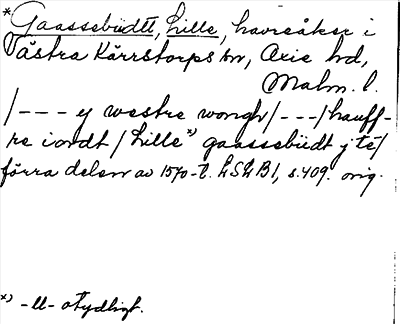 *Gaassebüdtt, Lille, havreåker i
Västra Kärrstorps sn, Oxie hd,
Malm. l.
/--- ej westre wongh/---/hauff-
re iordt/Lille*) gaassebüdt j té/
förra delen av 1570-t. LSHB1, s. 409. orig.
*) -ll- otydligt.